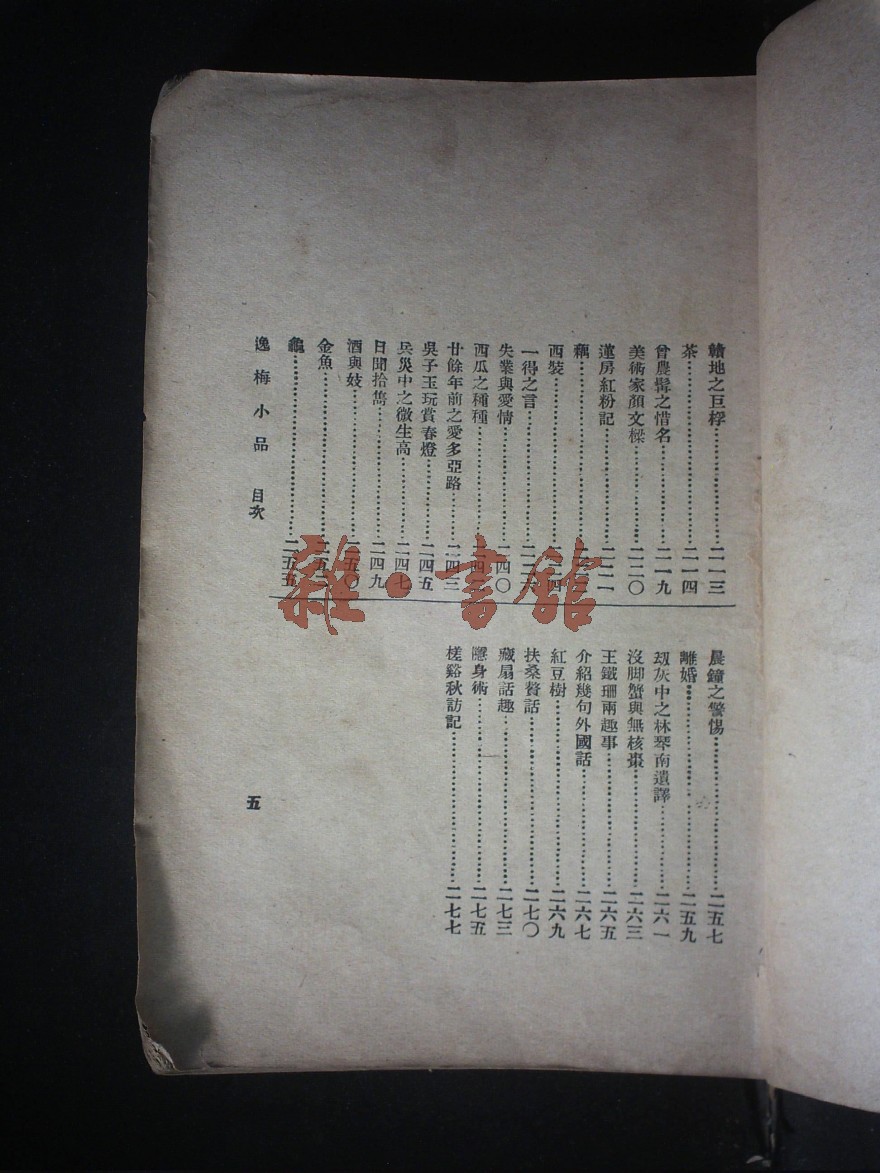 贛地之巨桴……二一三
茶……二一四
曾農髯之惜名……二一九
美術家顏文樑……二二〇
蓮房紅粉記……二二一
藕……二
西裝……二四
一得之言……二
失業與愛情……四〇
西瓜之種種……二四
廿餘年前之愛多亞路……二四三
吳子玉玩賞春燈……二四五
兵災中之微生高……二四七
日聞拾雋……二四九
酒與妓……二五〇
金魚……二五
龜……二五五
晨鐘之警惕……二五七
離婚……二五九
刼灰中之林琴南遺譯……二六一
沒脚蟹與無核棗……二六三
王鐵珊兩趣事……二六五
介紹幾句外國話……二六七
紅豆樹……二六九
扶桑贅話……二七〇
藏扇話趣……二七三
隱身術……二七五
槎谿秋訪記……二七七
逸梅小品 目次
五
雜·書館